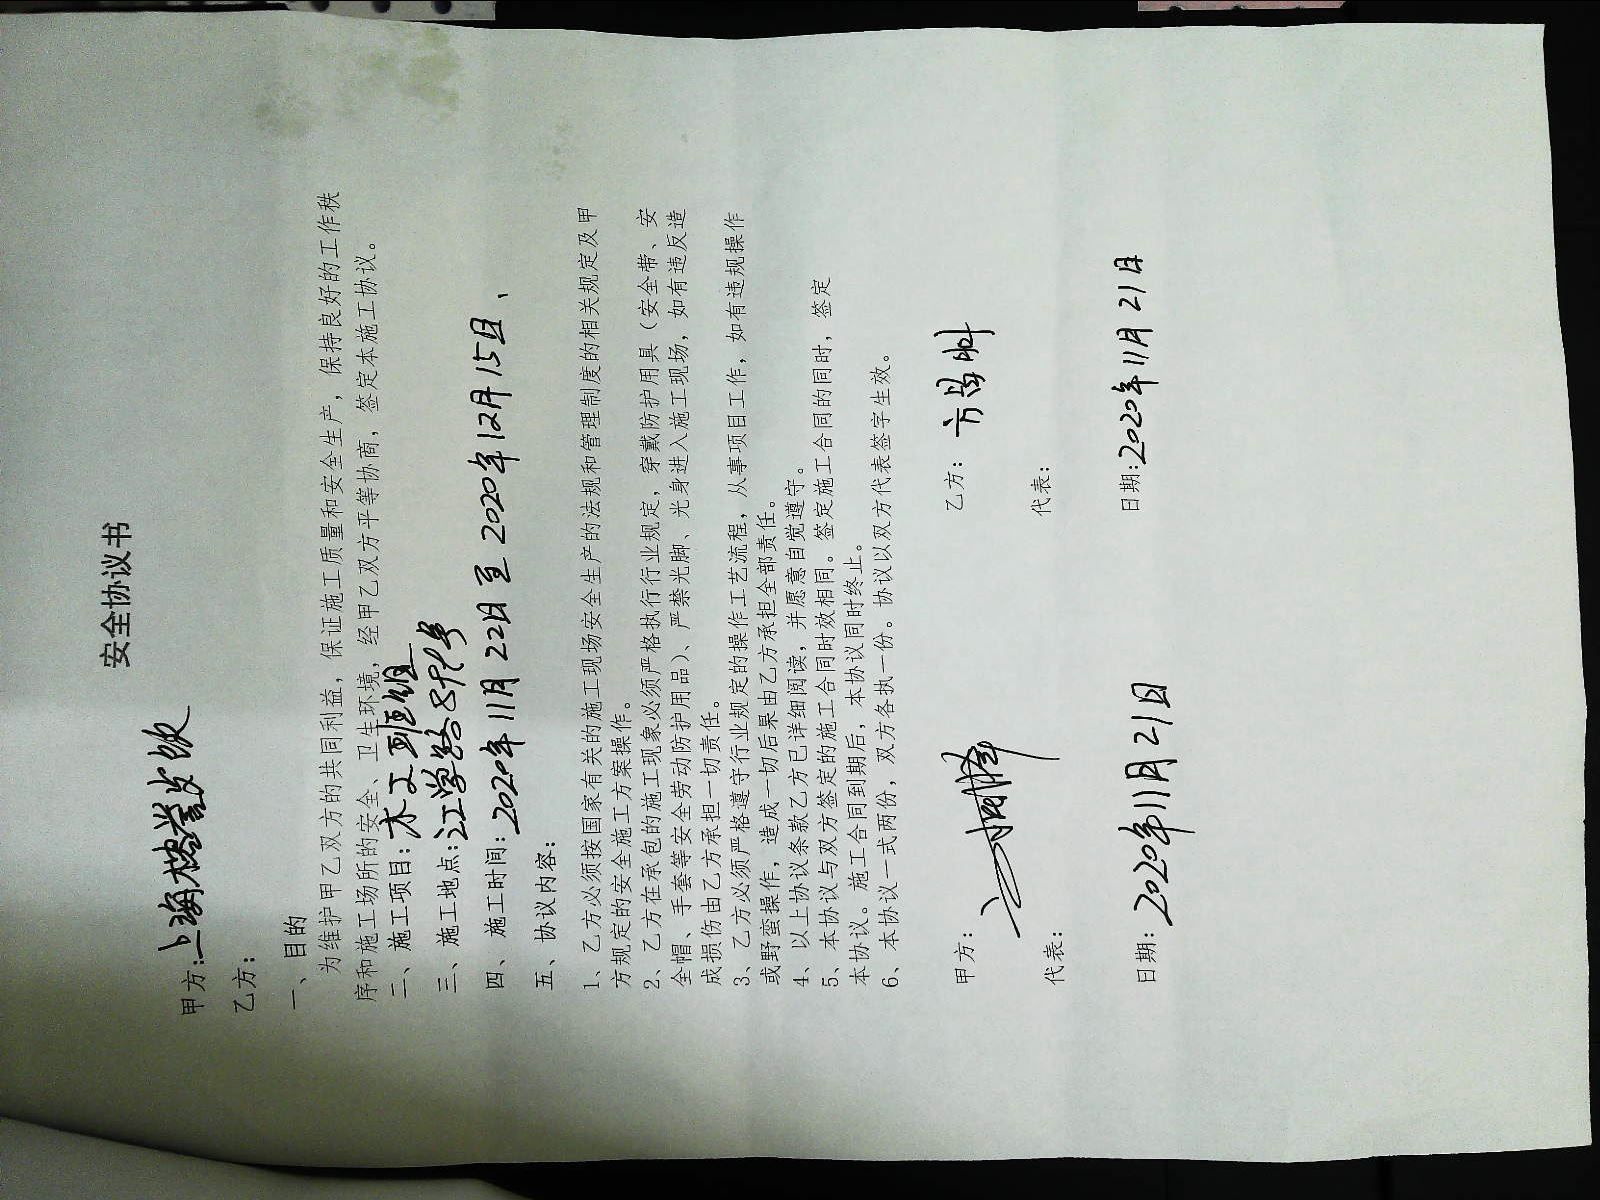 安全协议书
甲方:上海楼誉装饰
乙方:
一、目的
为维护甲乙双方的共同利益，保证施工质量和安全生产，保持良好的工作秩
序和施工场所的安全、卫生环境，经甲乙双方平等协商，签定本施工协议。
二、施工项目:木工班组
三、施工地点:江学路
四、施工时间:2020年11月22日至2020年12月15日、
五、协议内容:
1、乙方必须按国家有关的施工现场安全生产的法规和管理制度的相关规定及甲
方规定的安全施工方案操作。
2、乙方在承包的施工现象必须严格执行行业规定，穿戴防护用具（安全带、安
全帽、手套等安全劳动防护用品）、严禁光脚、光身进入施工现场，如有违反造
成损伤由乙方承担一切责任。
3、乙方必须严格遵守行业规定的操作工艺流程，从事项目工作，如有违规操作
或野蛮操作，造成一切后果由乙方承担全部责任。
4、以上协议条款乙方已详细阅读，并愿意自觉遵守。
5、本协议与双方签定的施工合同时效相同。签定施工合同的同时，签定
本协议。施工合同到期后，本协议同时终止。
6、本协议一式两份，双方各执一份。协议以双方代表签字生效。
甲方: 乙方:
代表: 代表:
日期:2020年11月21日 日期:2020年11月21日